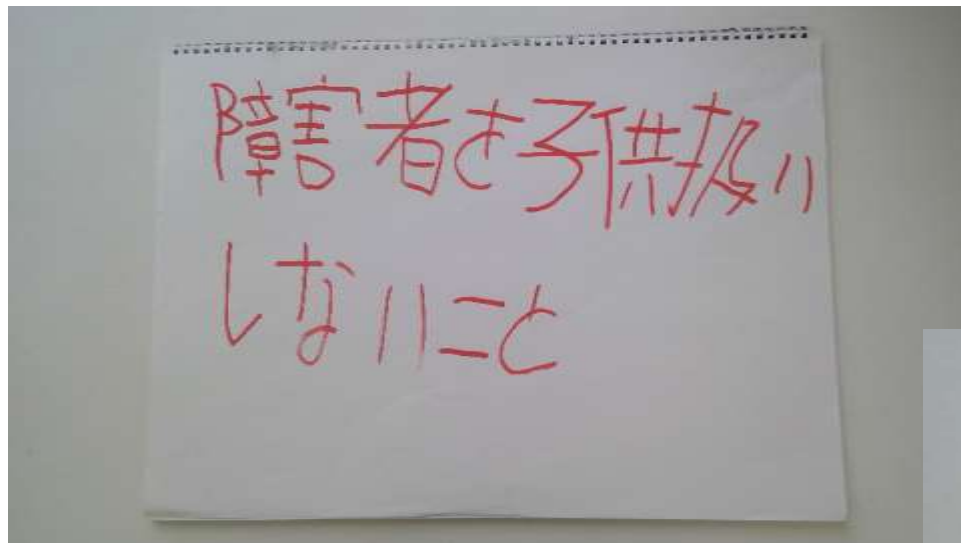 障害者を子供扱い
しないこと